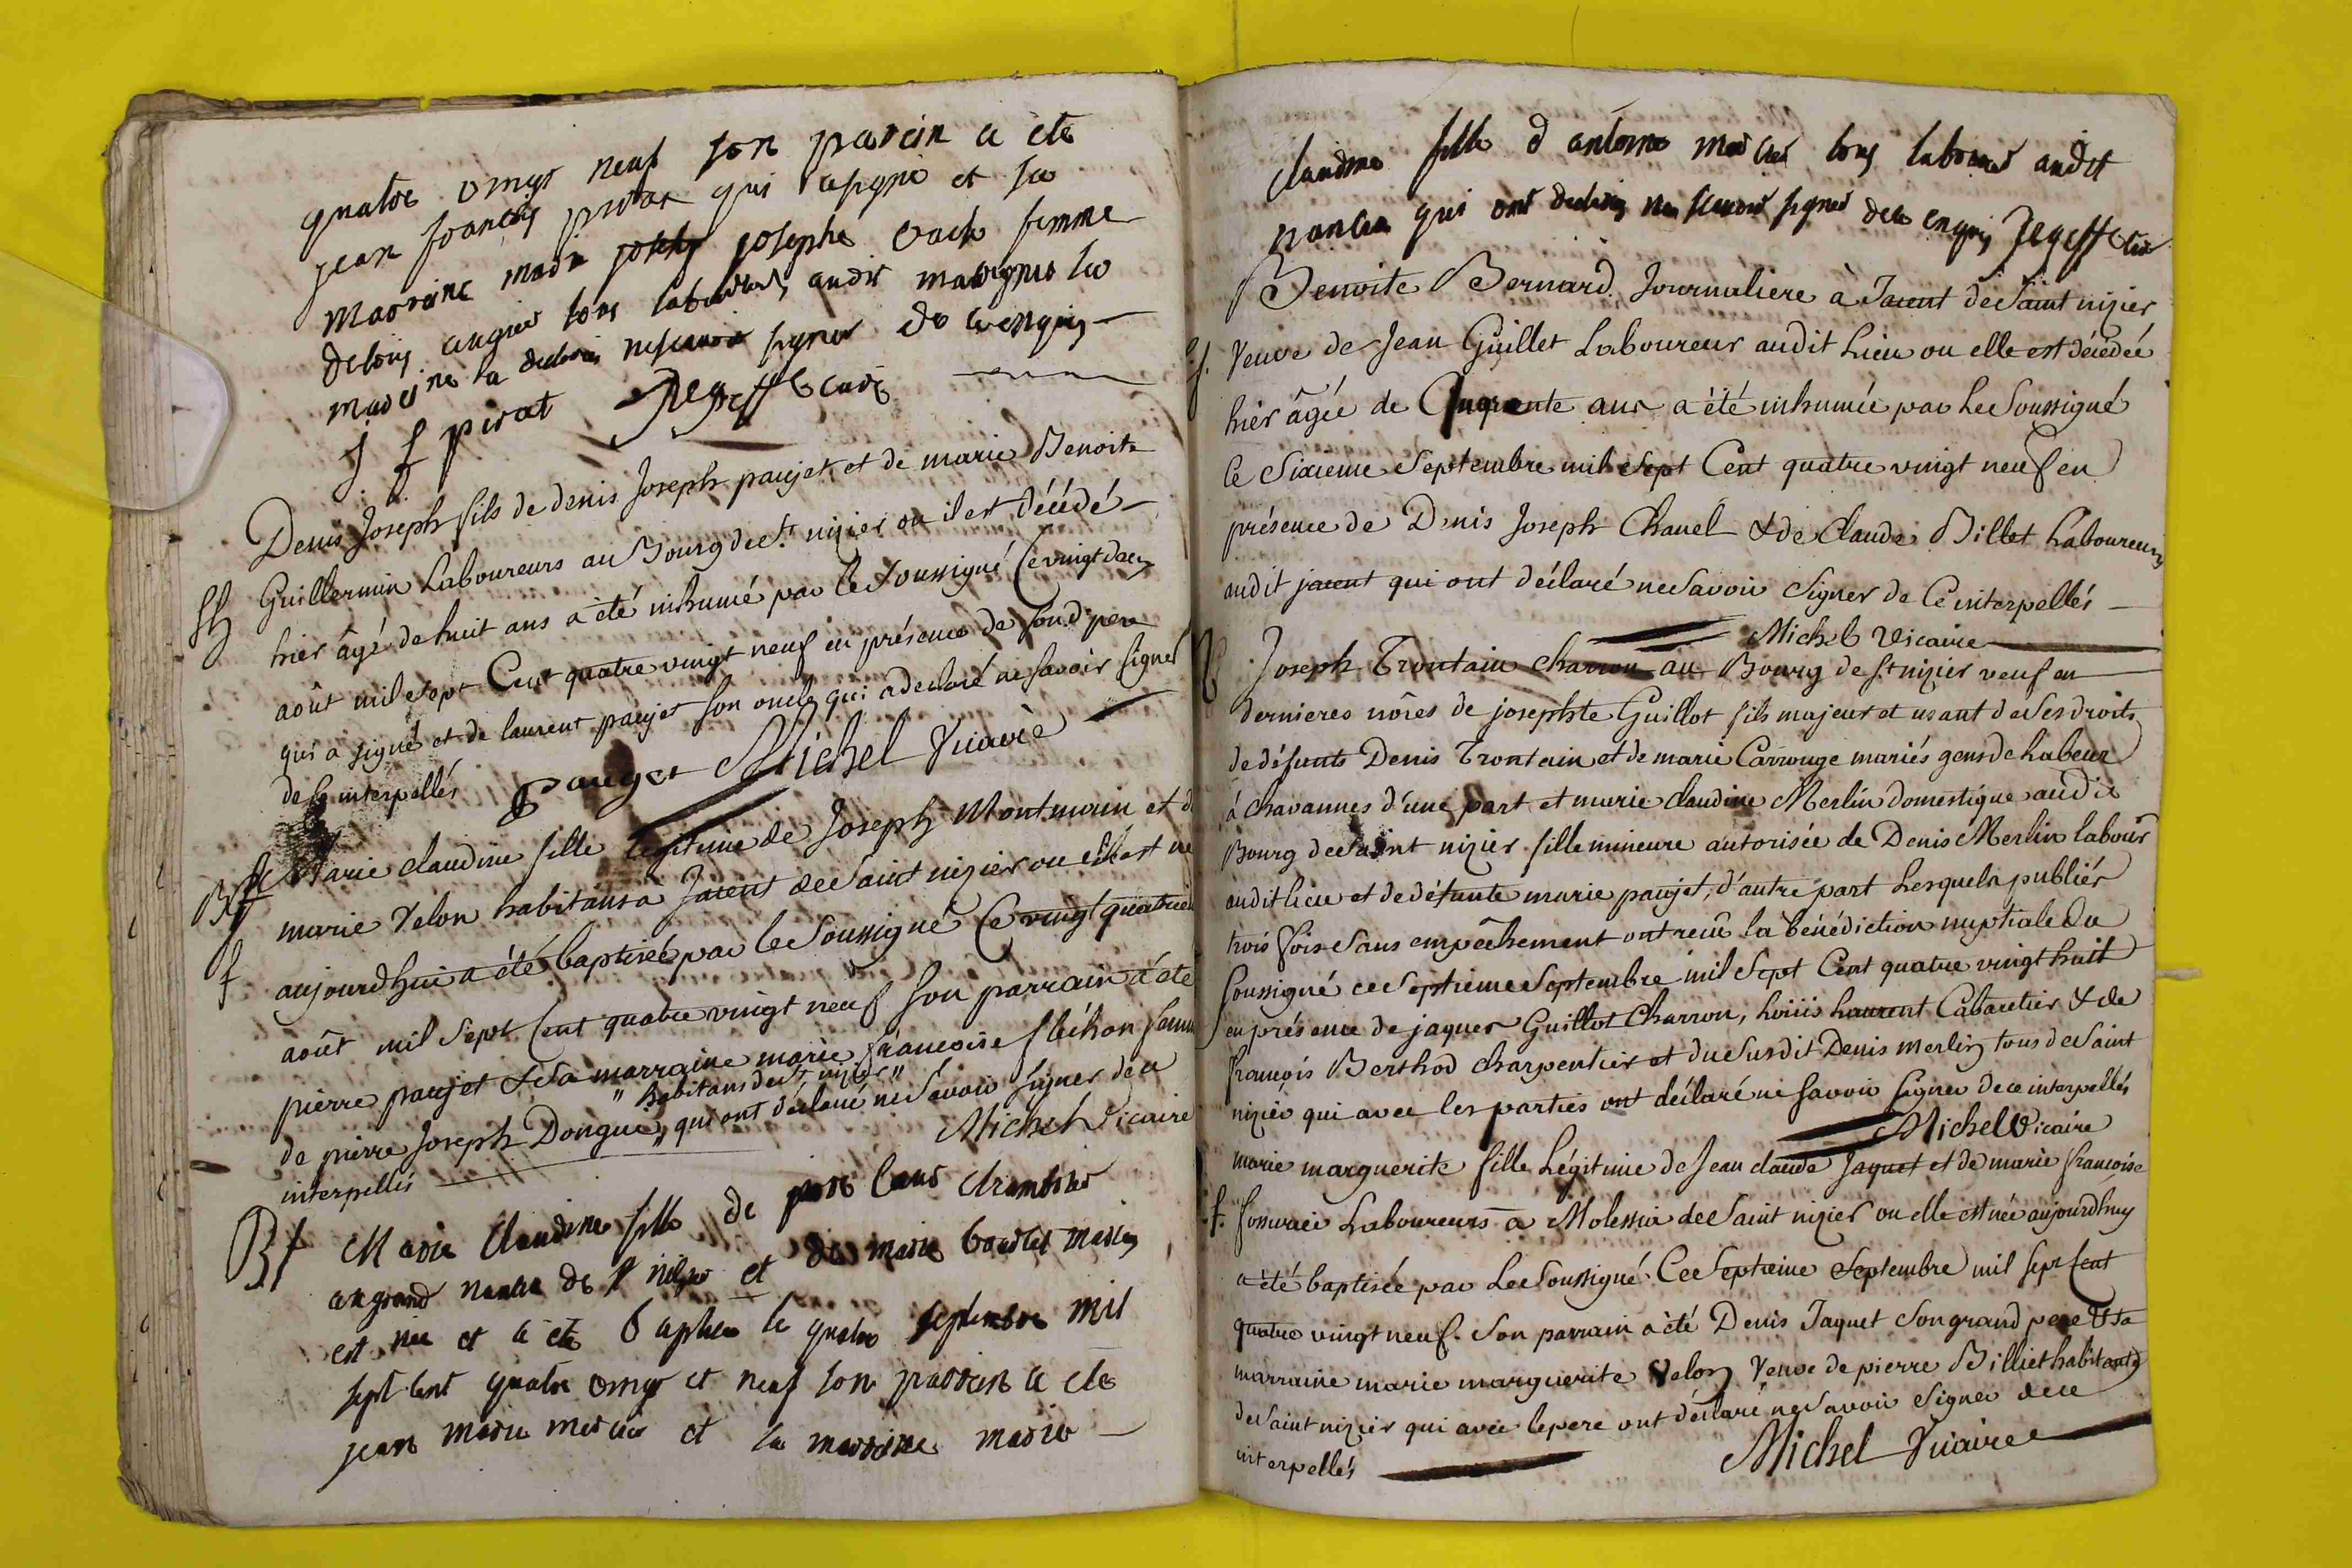 quatre vingt neuf son parein a ete
jean francois pirat qui a signé et sa
marreine marie josephe femme
audit la
mareine la declaré ne scavoir signer de ce enquis
j f pirat curé
Denis Joseph fils de denis Joseph paujet et de marie Benoite
Sh Guillermin Laboureurs au Bourg de St. nizier ou il est décédé
hier âgé de huit ans a été inhumé par le soussigné Ce vingt deux
août mil sept Cent quatre vingt neuf en présence de son d. pere
qui a signé et de laurent paujet son oncle qui a declaré ne savoir signer
de ce interpellés Paujet Michel Vicaire
Bt Marie claudine fille légitime de Joseph Montmain et de
marie Velon habitans a Jaient de Saint nizier ou elle est née
f aujourdhui a été baptisée par le Soussigné Ce vingt quatrie
août mil Sept Cent quatre vingt neuf Son parrain a été
pierre paujet & Sa marraine marie françoise fléchon femme
" habitans de St nizier "
de pierre Joseph Dongue " qui ont déclaré ne Savoir signer de ce
interpellés Michel Vicaire
Bt Marie Claudine fille de
au grand de St nizier et de marie mariés
est née et a ete Baptisee le quatre septembre mil
sept cent quatre vingt et neuf son parrein a ete
jean marie mercier et sa marreine marie
claudine fille d antoine mercier tous laboureurs audit
qui ont declarés ne scavoir signer de ce enquis
Benoite Bernard Journaliere à Jaient de Saint nizier
f. Veuve de Jean Guillet Laboureur audit Lieu ou elle est décédée
hier âgée de ans a été inhumée par Le Soussigné
Ce Sixieme Septembre mil Sept Cent quatre vingt neuf en
présence de Denis Joseph Chanel & de Claude Billet Laboureurs
audit jaient qui ont déclaré ne Savoir Signer de Ce interpellés
Michel Vicaire
Joseph Trontain charron au Bourg de St nizier veuf en
dernieres nôces de josephte Guillot fils majeur et usant de Ses droits
de défunts Denis Trontain et de marie Carrouge mariés gens de Labeur
à chavannes d'une part et marie claudine Merlin domestique audit
Bourg de Saint nizier fille mineure autorisée de Denis Merlin labour
audit lieu et de défunte marie paujet, d'autre part Lesquels publiés
trois fois Sans empêchement ont reçû la bénédiction nuptiale du
Soussigné ce Septieme Septembre mil Sept Cent quatre vingt huit
en présence de jaques Guillot Charron, Laurent Cabaretier & de
françois Berthod charpentier et du Susdit Denis merlin tous de Saint
nizier qui avec les parties ont déclaré ne Savoir Signer de ce interpellés
Michel Vicaire
marie marguerite fille Légitime de Jean claude Jaquet et de marie françoise
f. Laboureurs a Molessia de Saint nizier ou elle est née aujourdhuy
a été baptisée par Le Soussigné Ce Septieme Septembre mil sept Cent
quatre vingt neuf. Son parrain a été Denis Jaquet Son grand pere & Sa
marraine marie marguerite Velon Veuve de pierre Billiet habitants
de Saint nizier qui avec le pere ont déclaré ne Savoir Signer de ce
interpellés Michel Vicaire